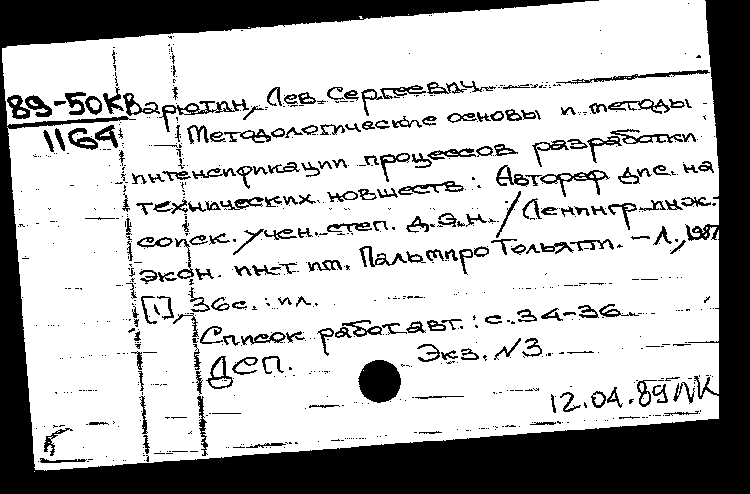 89-50К Варютин, Лев Сергеевич
1164 Методологические основы и методы
интенсификации процессов разработки
технических новшеств: Автореф дис. на
соиск. учен. степ. д.э.н. / Ленингр. инж.-
экон. ин-т им. Пальмиро Тольятти. – Л., 1987
[1], 36с. : ил.
Список работ авт. : с. 34-36
ДСП. Экз. N3.
12.04.89